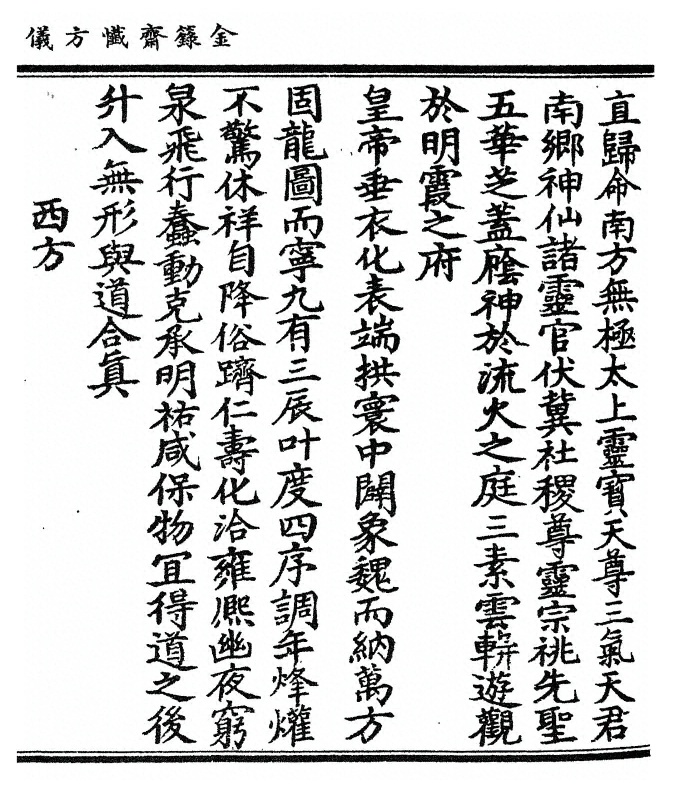 金籙齋懺方儀
直歸命南方無極太上靈寶天尊三氣天君
南鄉神仙諸靈官伏冀社稷尊靈宗祧先聖
五華芝蓋廕神於流火之庭三素雲軿遊觀
於明霞之府
皇帝垂衣化表端拱寰中闢象魏而納萬方
固龍圖而寧九有三辰叶度四序調年烽燿
不驚休祥自降俗躋仁壽化洽雍熈幽夜窮
泉飛行蠢動克承明祐咸保物宜得道之後
升入無形與道合真
西方